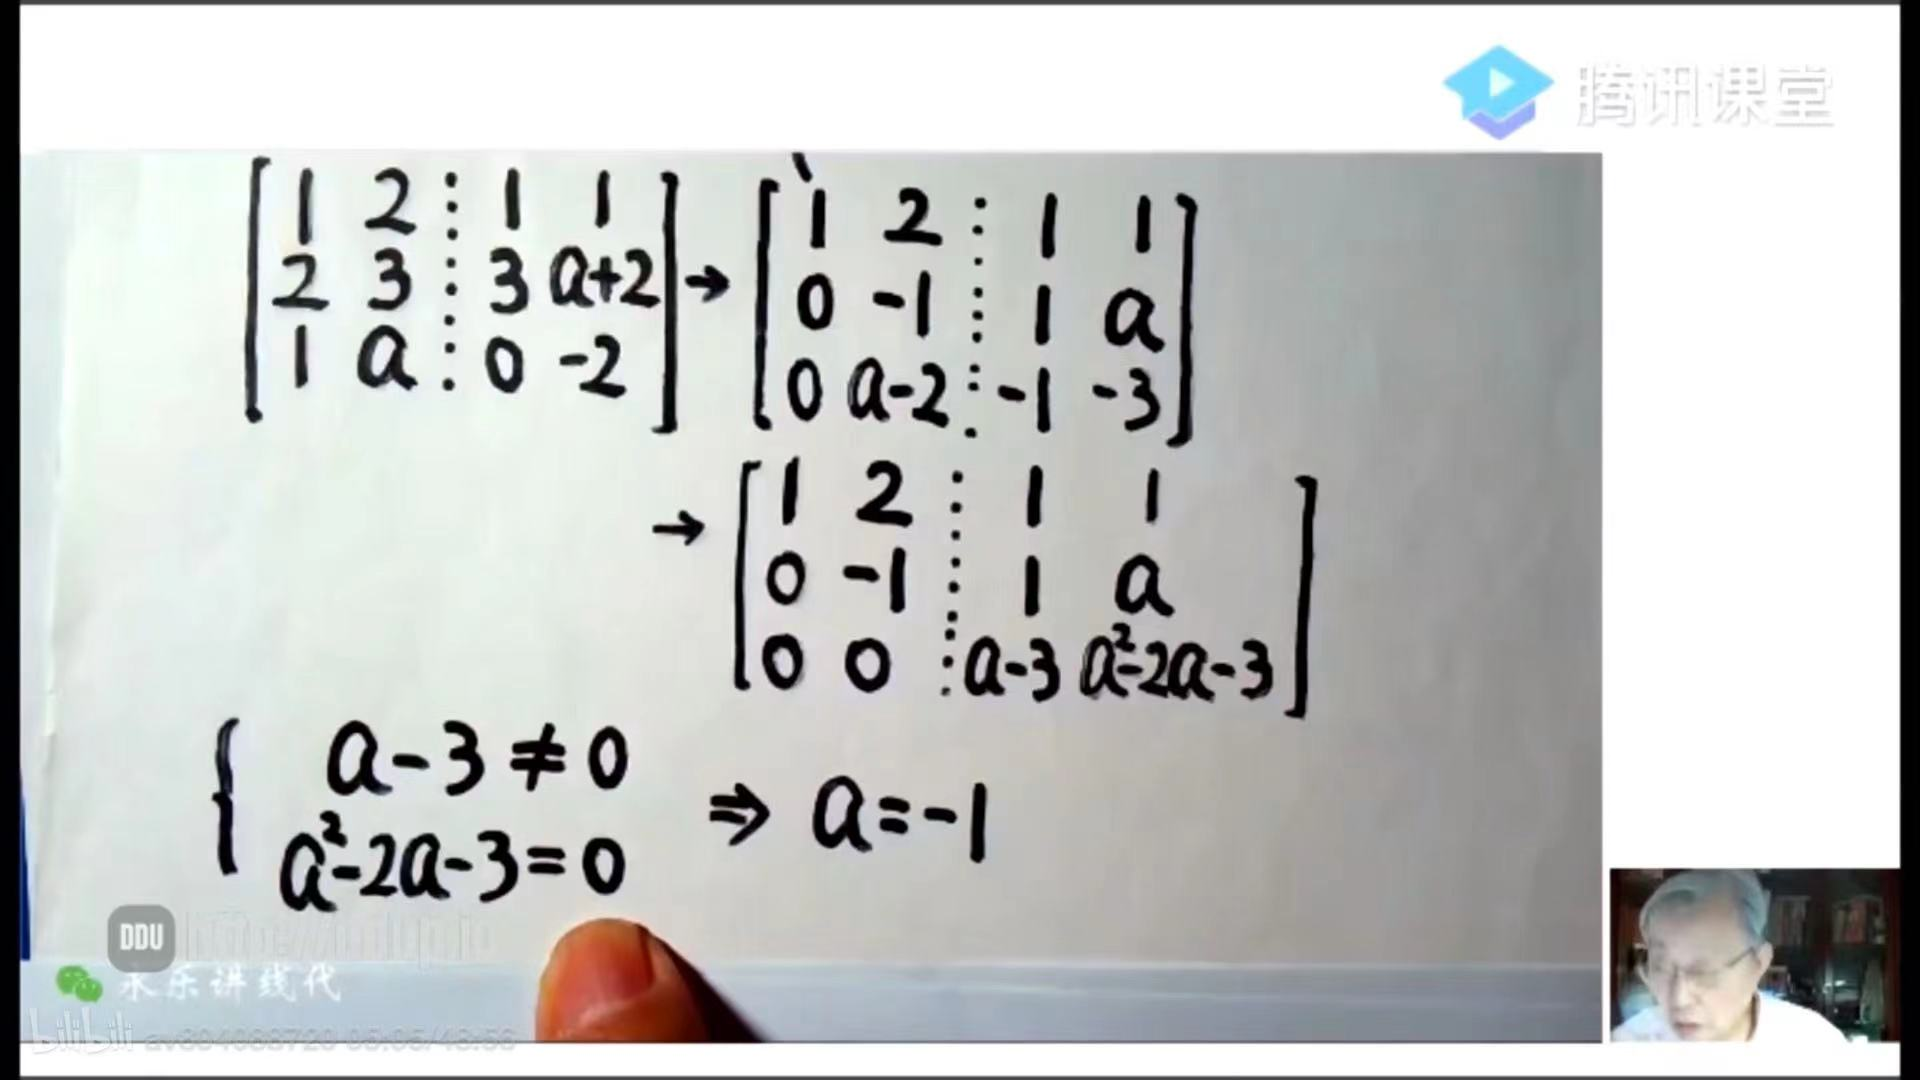 腾讯课堂
[1 2 ⋮ 1 1] → [1 2 ⋮ 1 1]
[2 3 ⋮ 3 a+2] [0 -1 ⋮ 1 a]
[1 a ⋮ 0 -2] [0 a-2 ⋮ -1 -3]
→ [1 2 ⋮ 1 1]
[0 -1 ⋮ 1 a]
[0 0 ⋮ a-3 a²-2a-3]
{ a-3≠0
a²-2a-3=0 ⇒ a=-1
DDU
永乐讲线代
bilibili